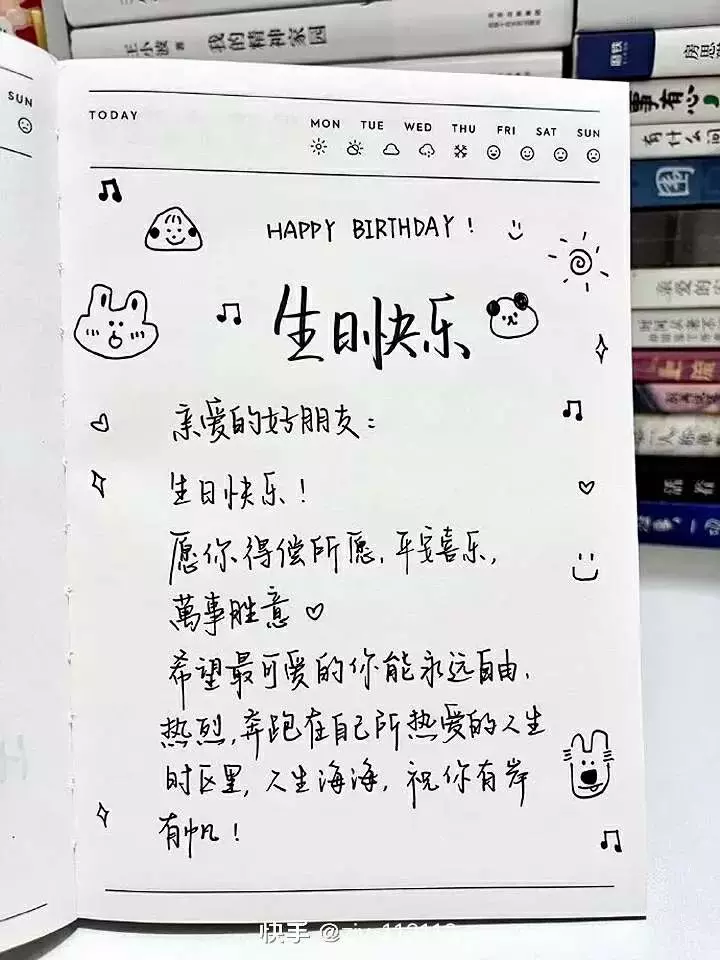 王小波 著 我的精神家园
SUN
TODAY
MON TUE WED THU FRI SAT SUN
HAPPY BIRTHDAY !
生日快乐
亲爱的好朋友：
生日快乐！
愿你得偿所愿，平安喜乐，
萬事胜意
希望最可爱的你能永远自由，
热烈，奔跑在自己所热爱的人生
时区里，人生海海，祝你有岸
有帆！
事有心
有什么问
亲爱的
快手